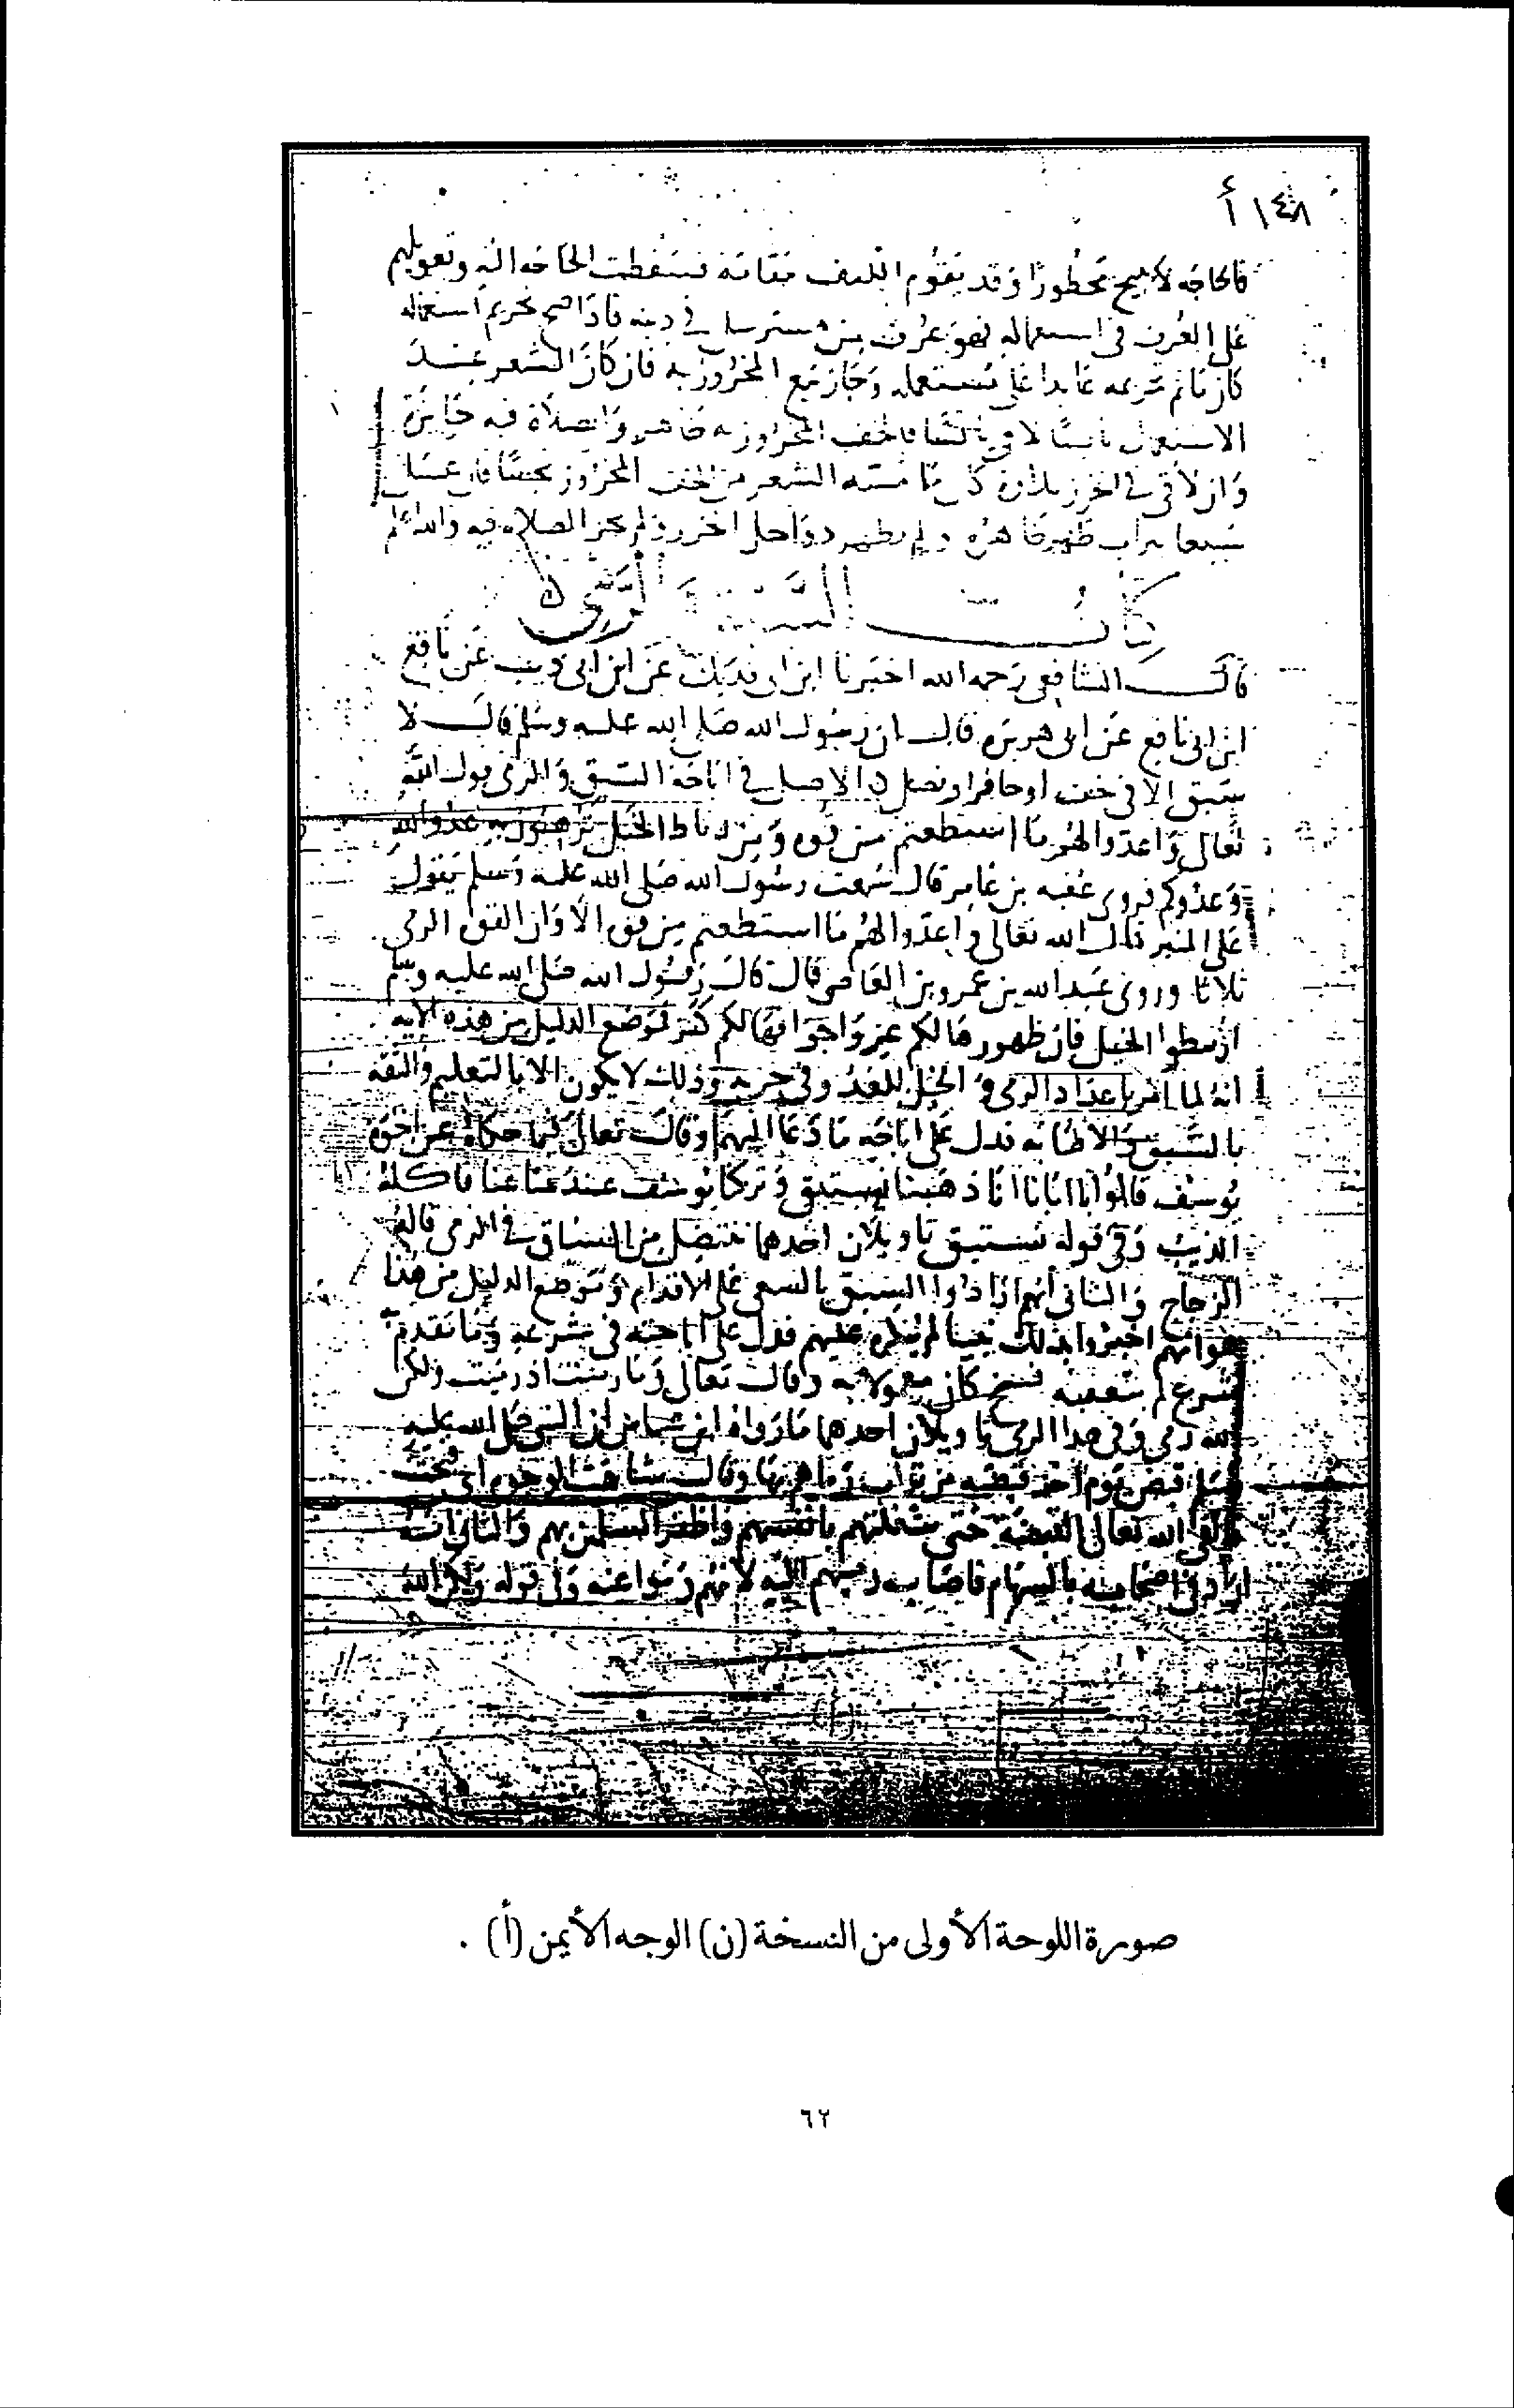 ١٤٨ أ
فالحاجة لا تبيح محظورا وقد يقوم الليف مقامه فسقطت الحاجه اليه وتعويلهم
على العرف في استعماله فهو عرف من مسترسل في دينه فاذا صح تحريم استعماله
كان ماثم تحريمه عايدا على مستعمله وجاز بيع المخروز به فان كان الشعر عند
الاستعمال يابسا لاقى يابسا فالخف المخروز به طاهر والصلاة فيه جايزة
وان لاقى في الخرز بللا كان كل ما مسه الشعر من الخف المخروز نجسا فان غسل
سبعا بتراب طهر ظاهره ولم يطهر دواخل الخرز ولم تجز الصلاه فيه والله اعلم
كتاب السبق والرمي
قال الشافعي رحمه الله اخبرنا ابن ابى فديك عن ابن ابى ذيب عن نافع
ابن ابى نافع عن ابى هريرة قال ان رسول الله صلى الله عليه وسلم قال لا
سبق الا في خف او حافر او نصل الاصل في اباحة السبق والرمى قول الله
تعالى واعدوا لهم ما استطعتم من قوة ومن رباط الخيل ترهبون به عدو الله
وعدوكم فروى عقبه بن عامر قال سمعت رسول الله صلى الله عليه وسلم يقول
على المنبر قال الله تعالى واعدوا لهم ما استطعتم من قوة الا وان القوة الرمى
ثلاثا وروى عبد الله بن عمرو بن العاص قال قال رسول الله صلى الله عليه وسلم
ارتبطوا الخيل فان ظهورها لكم عز واجوافها لكم كنز فموضع الدليل من هذه الايه
انه لما امر باعداد الرمى و الخيل للعدو في حربه وذلك لا يكون الا بالتعليم والثقة
بالسبق و فدل على اباحه ما دعا اليهما وقال تعالى فيما حكاه عن اخوة
يوسف قالوا يا ابانا انا ذهبنا نستبق وتركنا يوسف عند متاعنا فاكله
الذيب وفي قوله نستبق تاويلان احدهما ننتضل من السباق في الرمى قاله
الزجاج والثانى انهم ارادوا السبق بالسعى على الاقدام وموضع الدليل من هذا
هو انهم اخبروا بذلك نبيا لم ينكره عليهم فدل على اباحته في شرعه وما تقدم به
شرع لم يتعقبه نسخ كان معمولا به وقال تعالى وما رميت اذ رميت ولكن
الله رمى وفي هذا الرمى تاويلان احدهما ما رواه ابن عباس ان النبى صلى الله عليه
وسلم قبض يوم احد قبضه من تراب رماهم بها وقال شاهت الوجوه اى قبحت
فالقى الله تعالى القبضة حتى شغلتهم بانفسهم واظفر المسلمين بهم والثانى انه
اراد اصحابه بالسهام فاصاب رميهم اليه لانهم رموا عنه وفى قوله ولكن الله
صورة اللوحة الأولى من النسخة (ن) الوجه الأيمن (أ) .
٦٢